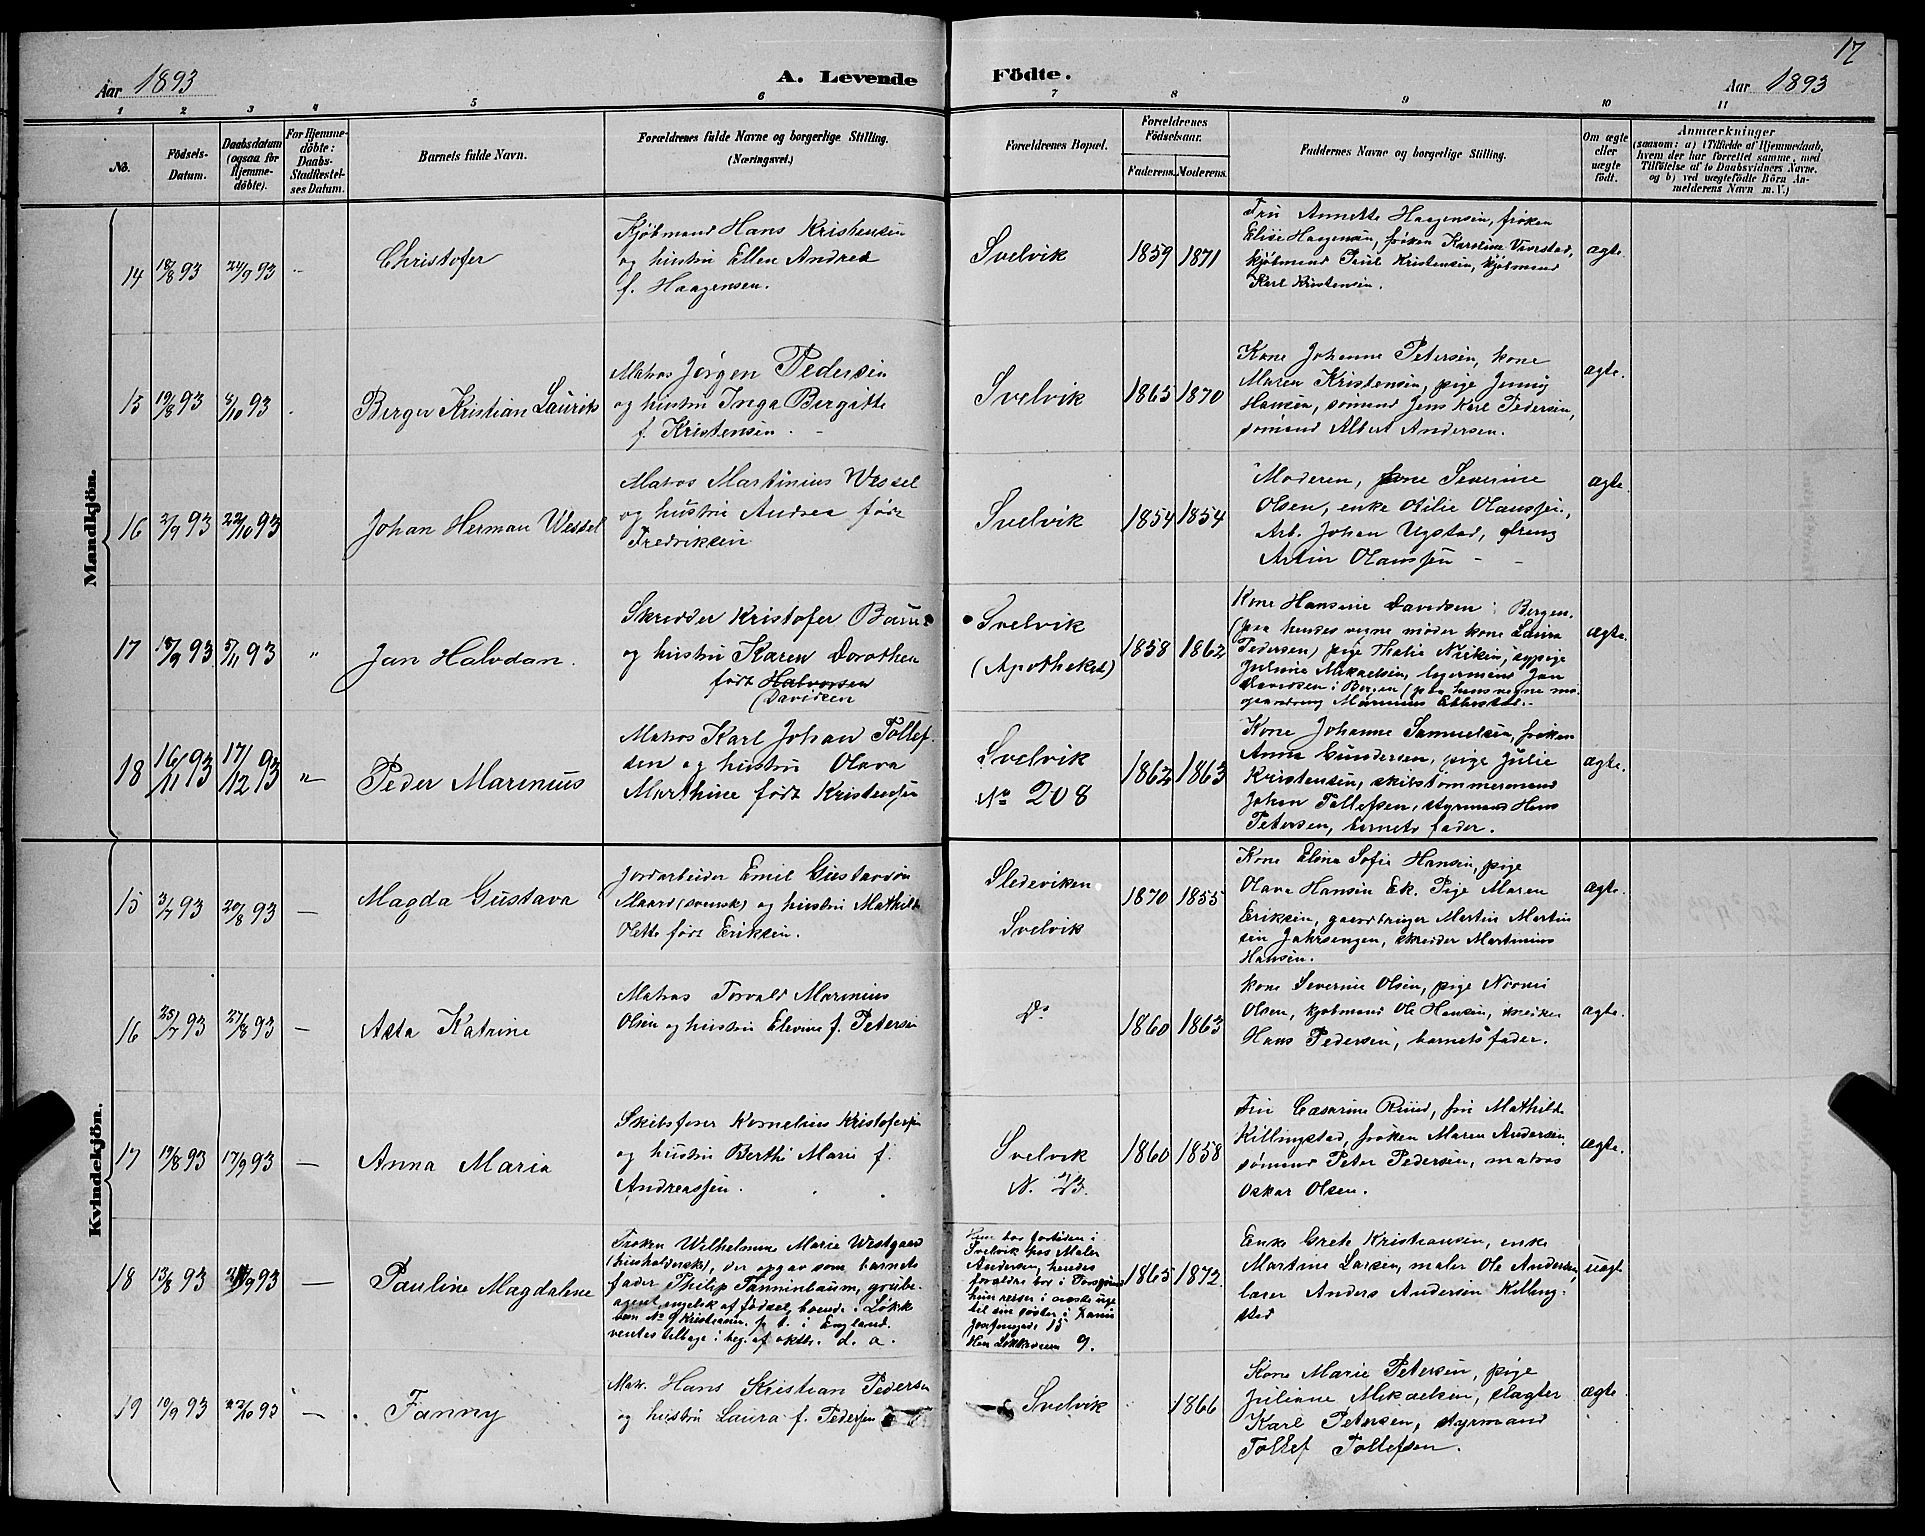 17
Aar 1893
A. Levende Födte.
Aar 1893
1 2 3 4 5 6 7 8 9 10 11
No.
Födsels-
Datum.
Daabsdatum
(ogsaa for
Hjemme-
döbte).
For Hjemme-
döbte:
Daabs-
Stadfæstel-
ses Datum.
Barnets fulde Navn.
Forældrenes fulde Navne og borgerlige Stilling.
(Næringsvei.)
Forældrenes Bopæl.
Forældrenes
Födselsaar.
Faderens. Moderens.
Faddernes Navne og borgerlige Stilling.
Om ægte
eller
uægte
födt.
Anmærkninger
(saasom: a) i Tilfælde af Hjemmedaab,
hvem der har forrettet samme, med
Tilföielse af to Daabsvidners Navne.
og b) ved uægtefödte Börn An-
melderens Navn m. V.)
Mandkjön.
14 18/8 93 24/9 93 "
Christofer
Kjøbmand Hans Kristensen
og hustru Ellen Andrea
f. Haagensen.
Svelvik
1859 1871
Fru Annette Haagensen, frøken
Elise Haagensen, frøken Karoline
kjøbmand Paul Kristensen, kjøbmand
Karl Kristensen.
ægte.
15 19/8 93 8/10 93
Berger Kristian Laurits
Matros Jørgen Pedersen
og hustru Inga Bergitte
f. Kristensen.
Svelvik
1865 1870
Kone Johanne Petersen, kone
Maren Kristensen, pige Jenny
Hansen, sømand Jens Karl Pedersen,
sømand Albert Andersen.
ægte.
16 2/9 93 22/10 93
Johan Herman Wessel
Matros Martinius Wessel
og hustru Andrea født
Fredriksen
Svelvik
1854 1854
Moderen, kone Severine
Olsen, enke Otilie Olaussen,
Arb. Johan Ugstad, dreng
Olaussen
ægte
17 18/9 93 5/11 93 "
Jan Halvdan.
Skredder Kristofer
og hustru Karen Dorothea
født Halvorsen
(Davidsen
Svelvik
(Apotheket)
1858 1862
Kone Hansine Davidsen i Bergen.
(paa hendes vegne møder kone Laura
Pedersen) pige Thalie
Juline Mikaelsen, Jan
Davidsen i Bergen (paa hans vegne mø-
Marinius
ægte.
18 16/11 93 17/12 93 "
Peder Marinius
Matros Karl Johan Tollef-
sen og hustru Olava
Marthine født Kristensen
Svelvik
No 208
1862 1863
Kone Johanne Samuelsen, frøken
Anna Gundersen, pige Julie
Kristensen, skibstømmermand
Johan Tollefsen, styrmand Hans
Petersen, barnets fader.
ægte.
Kvindekjön.
15 3/7 93 20/8 93 —
Magda Gustava
Jordarbeider Emil Gustavson
Maard (svensk) og hustru Mathilde
Olette født Eriksen.
Sledeviken
Svelvik
1870 1855
Kone Elina Sofie Hansen, pige
Olava Hansen Ek. Pige Maren
Eriksen, gaardbruger Martin Martin
sen Jahrsengen, skredder Martinius
Hansen.
ægte.
16 25/7 93 27/8 93 —
Asta Katrine
Matros Torvald Marinius
Olsen og hustru Elevine f. Petersen
Do
1860 1863
Kone Severine Olsen, pige Noomi
Olsen, kjøbmand Ole Hansen, snedker
Hans Pedersen, barnets fader.
ægte.
17 19/8 93 17/9 93 —
Anna Maria
Skibsfører Kornelius Kristofersen
og hustru Berthe Marie f.
Andreassen.
Svelvik
1860 1858
Fru Cæsarine Ruud, fru Mathilde
Killingstad, frøken Maren Andersen
sømand Peter Pedersen, matros
Oskar Olsen.
ægte.
18 13/8 93 93 —
Pauline Magdalene
Frøken Wilhelmine Marie Westgaard
(husholderske), der opgav som barnets
fader Philip Tanninbaum, grube-
agent, engelsk af fødsel, boende i Løkk
veien No 9 Kristiania. p. t. i England.
ventes tilbage i beg. af oktbr. d. a.
Hun bor for tiden i
Svelvik hos Maler
Andersen, hendes
forældre bor i Porsgrund
hun reiser i næste uge
til sin søster i
15
Han Løkkeveien 9.
1865 1872.
Enke Grete Kristiansen, enke
Martine Larsen, maler Ole Andersen,
Anders Andersen Killing-
stad
uægte
19 10/9 93 22/10 93 —
Fanny
Matr. Hans Kristian Pedersen
og hustru Laura f. Pedersen
Svelvik
1866
Kone Marie Petersen, pige
Juliane Mikaelsen, slagter
Karl Petersen, styrmand
Tollef Tollefsen.
ægte